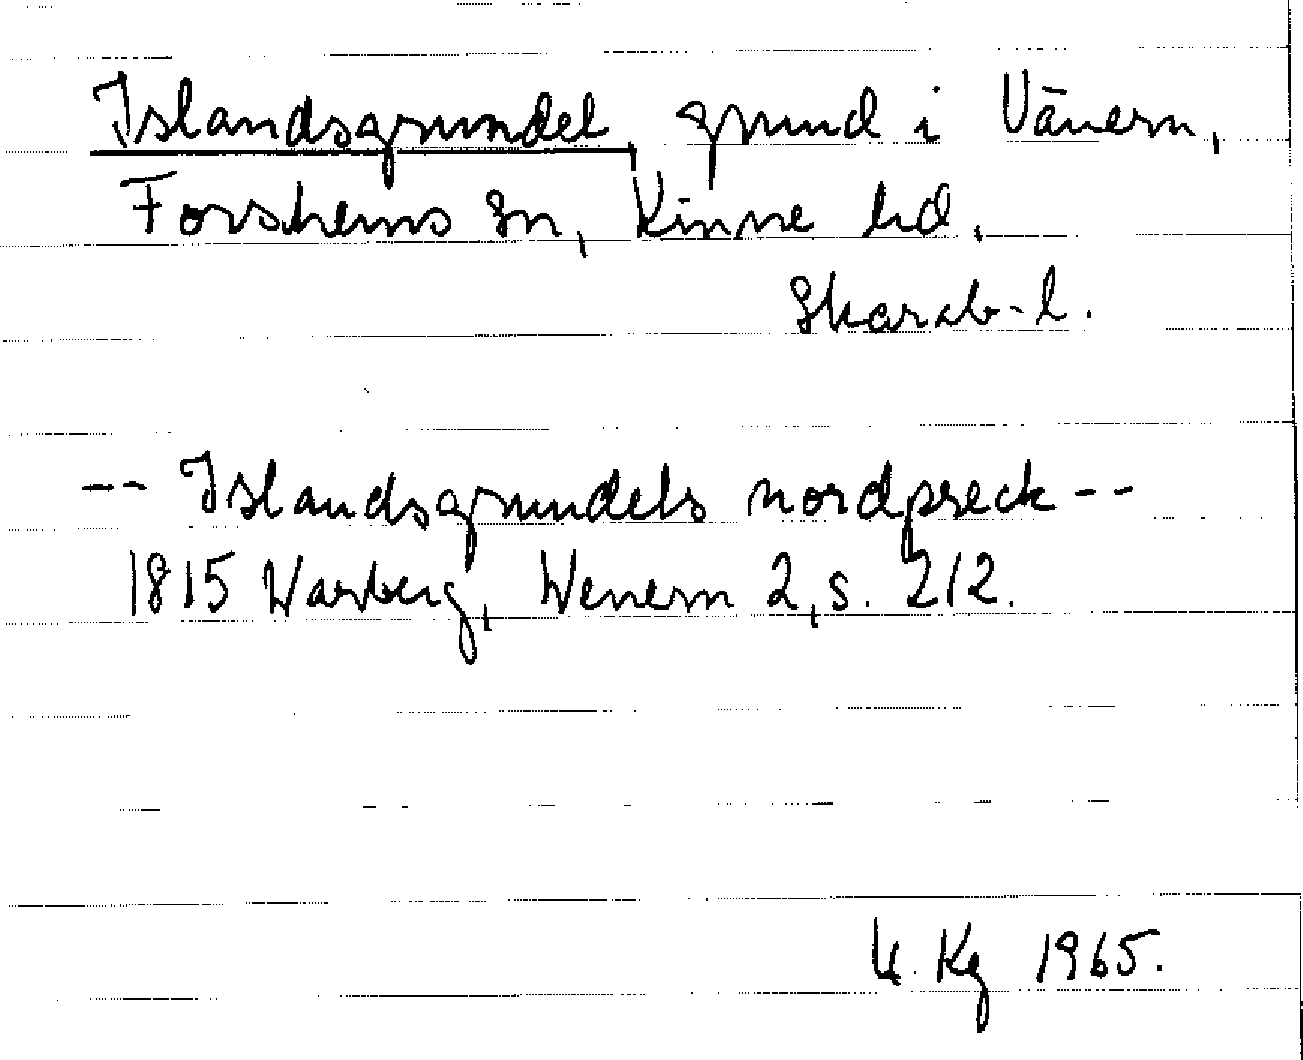 Islandsgrundet, grund i Vänern,
Forshems sn, Kinne hd,
Skarab-l.
-- Islandsgrundets nordpreck --
1815 Warberg, Wenern 2, s. 212.
Kg 1965.